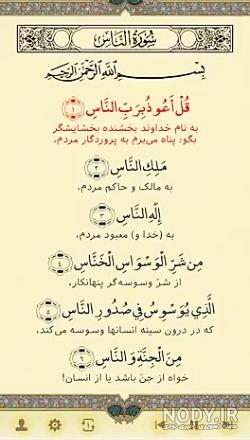 سُورَةُ النَّاسِ
بِسْمِ اللَّهِ الرَّحْمَنِ الرَّحِيمِ
قُلْ أَعُوذُ بِرَبِّ النَّاسِ ۝١
به نام خداوند بخشنده بخشایشگر
بگو: پناه می‌برم به پروردگار مردم،
مَلِكِ النَّاسِ ۝٢
به مالک و حاکم مردم،
إِلَهِ النَّاسِ ۝٣
به (خدا و) معبود مردم،
مِن شَرِّ الْوَسْوَاسِ الْخَنَّاسِ ۝٤
از شرّ وسوسه‌گر پنهانکار،
الَّذِي يُوَسْوِسُ فِي صُدُورِ النَّاسِ ۝٥
که در درون سینه انسانها وسوسه می‌کند،
مِنَ الْجِنَّةِ وَالنَّاسِ ۝٦
خواه از جنّ باشد یا از انسان!
NODY.IR